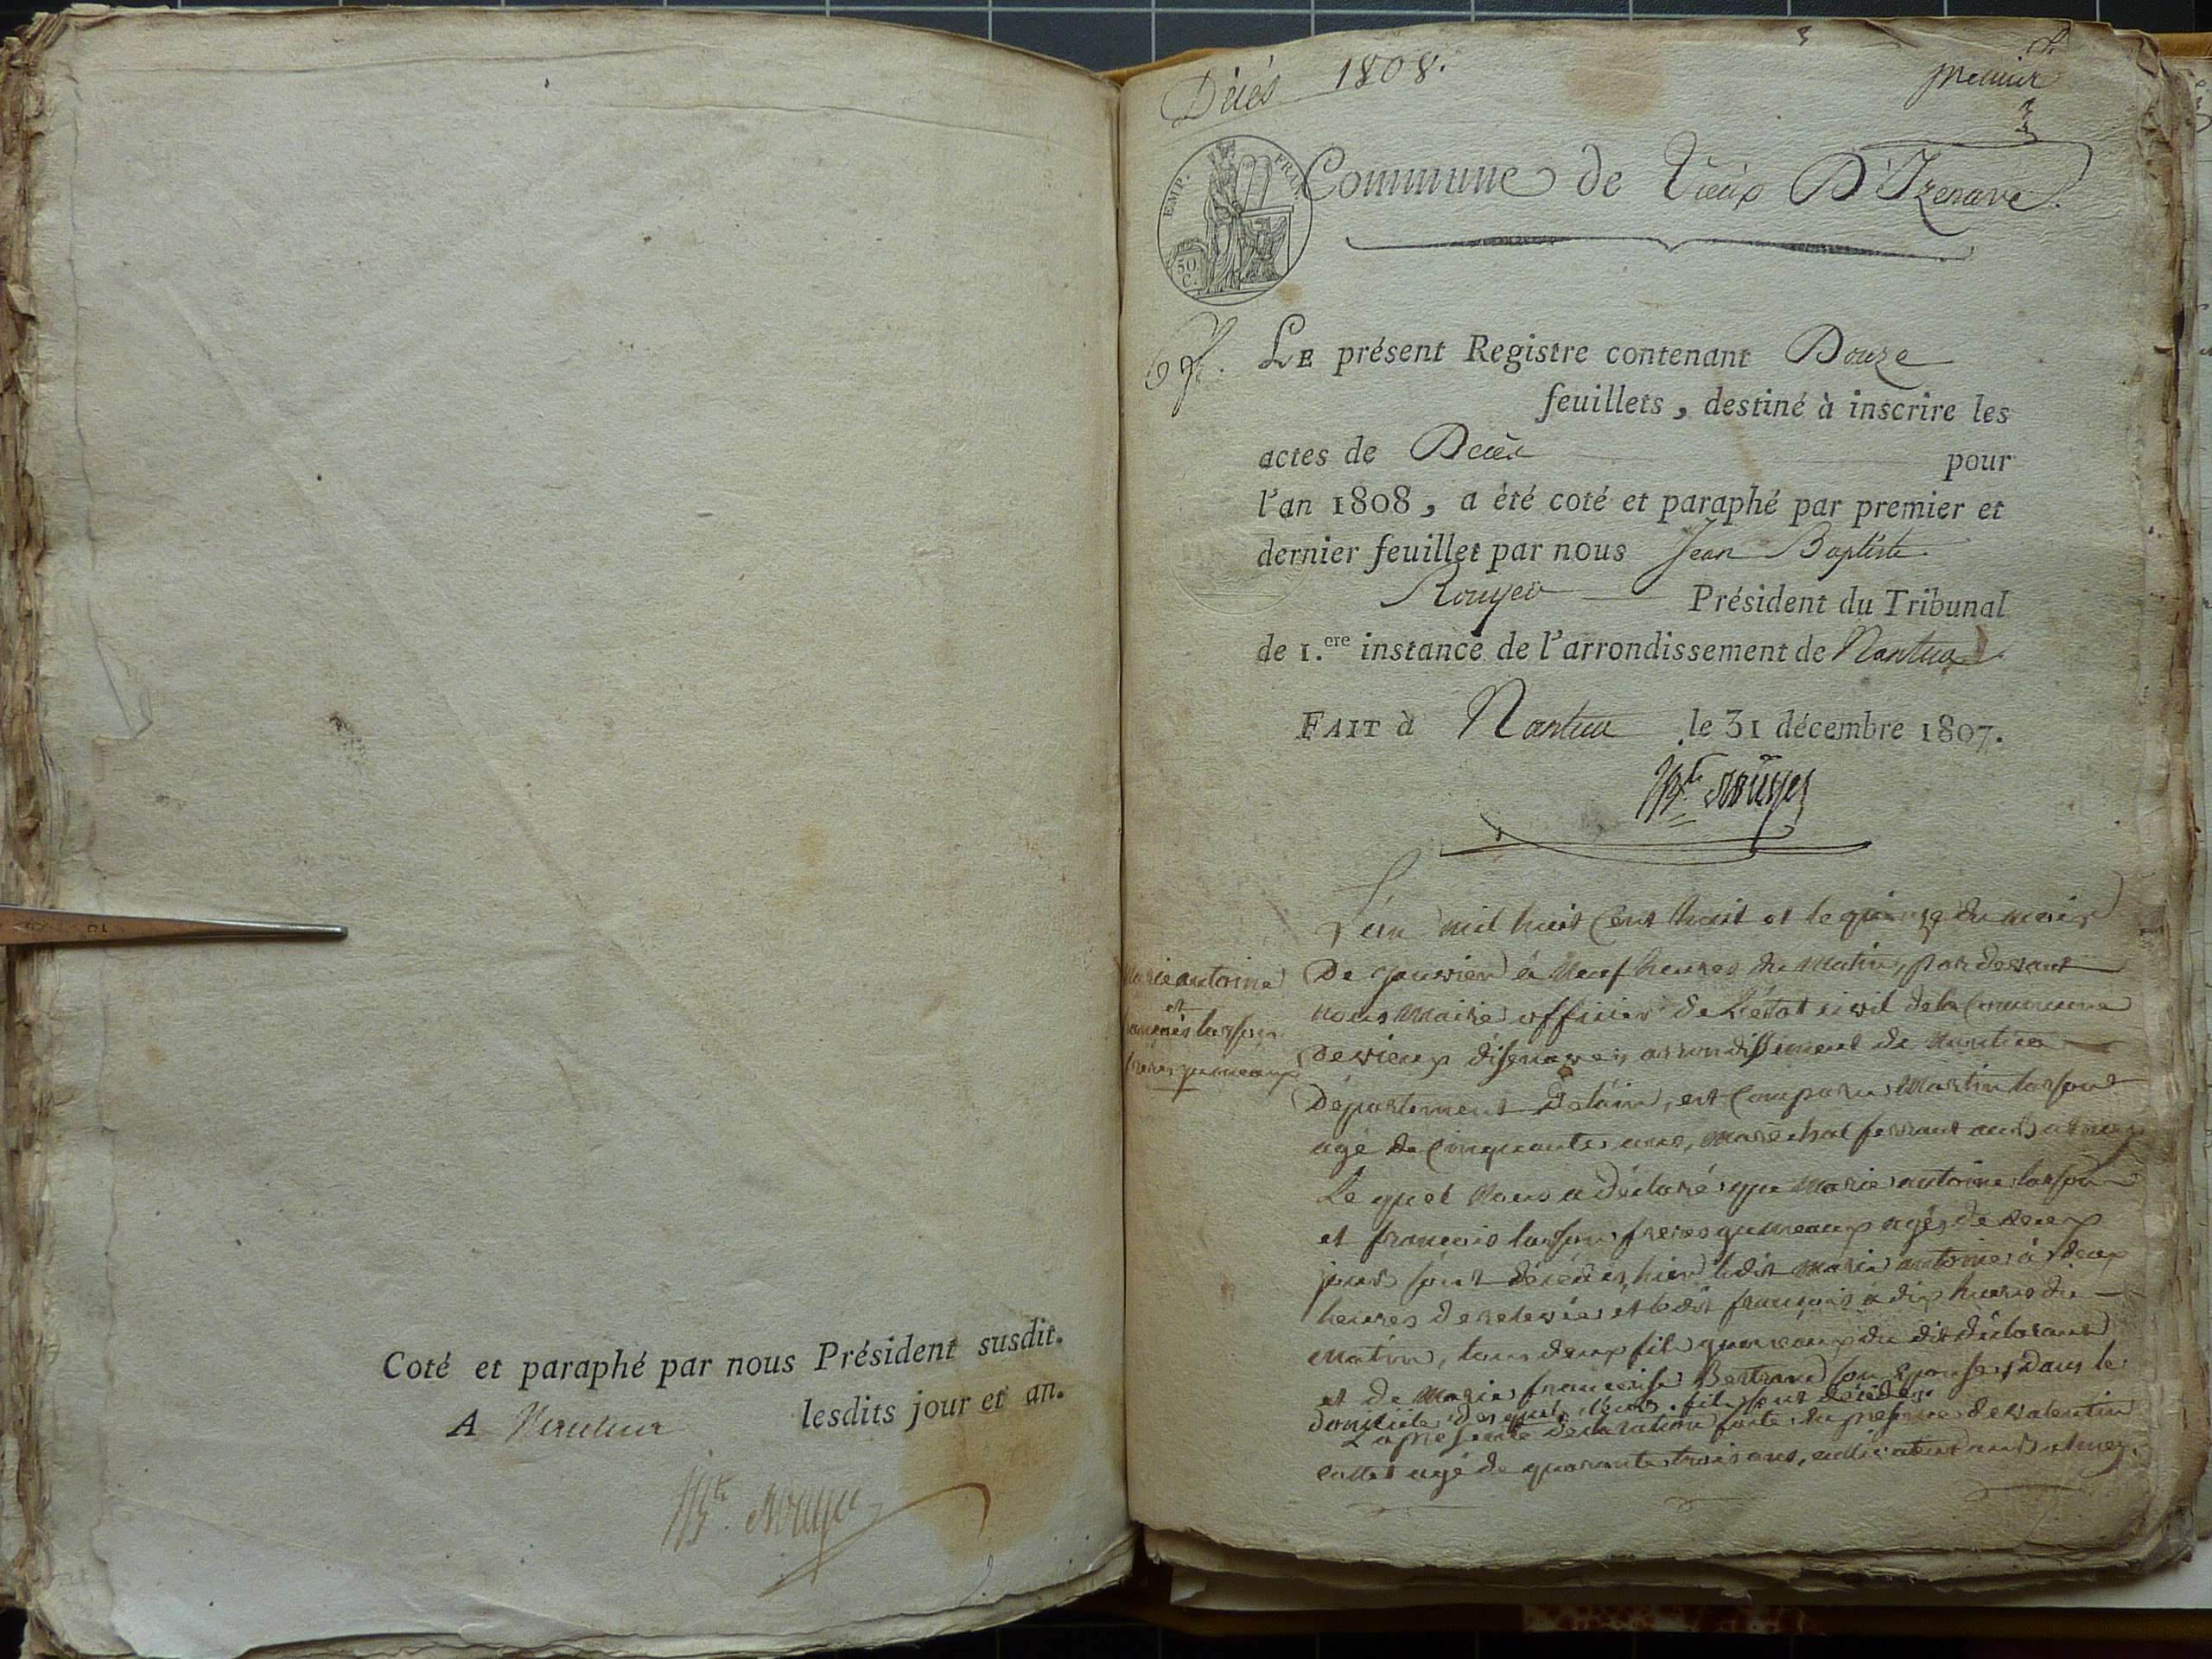 Coté et paraphé par nous Président susdit.
A Nantua lesdits jour et an.
Décés 1808.
premier
EMP. FRAN.
50 C.
Commune de Vieux D'Izenave.
LE présent Registre contenant Douze
feuillets, destiné à inscrire les
actes de Décès pour
l'an 1808, a été coté et paraphé par premier et
dernier feuillet par nous Jean Baptiste
Rouyer Président du Tribunal
de 1.ere instance de l'arrondissement de Nantua
FAIT à Nantua le 31 décembre 1807.
Jn Bte Rouyer
Marie antoine
et
françois
freres jumeaux
L'an mil huit Cent huit et le quinze du mois
De janvier à Neuf heures du Matin, par devant
nous Maire officier de L'état civil de la Commune
De vieux disenave, arrondissement de Nantua
Département De lain, est Comparu Martin
agé de Cinquante ans, maréchal ferrant aud.
Le quel Nous a déclaré que Marie antoine
et françois freres gumeaux agés de deux
jours sont décédés, hier ledit Marie antoine à deux
heures de relevée et ledit françois à dix heures du
Matin, tous deux fils gumeaux du dit déclarant
et de Marie françoise Bertrand son Epouse, dans le
domicile des quels leurs fils sont décédés.
La présente déclaration faite en présence de valentin
agé de quarante trois ans, cultivateur aud.